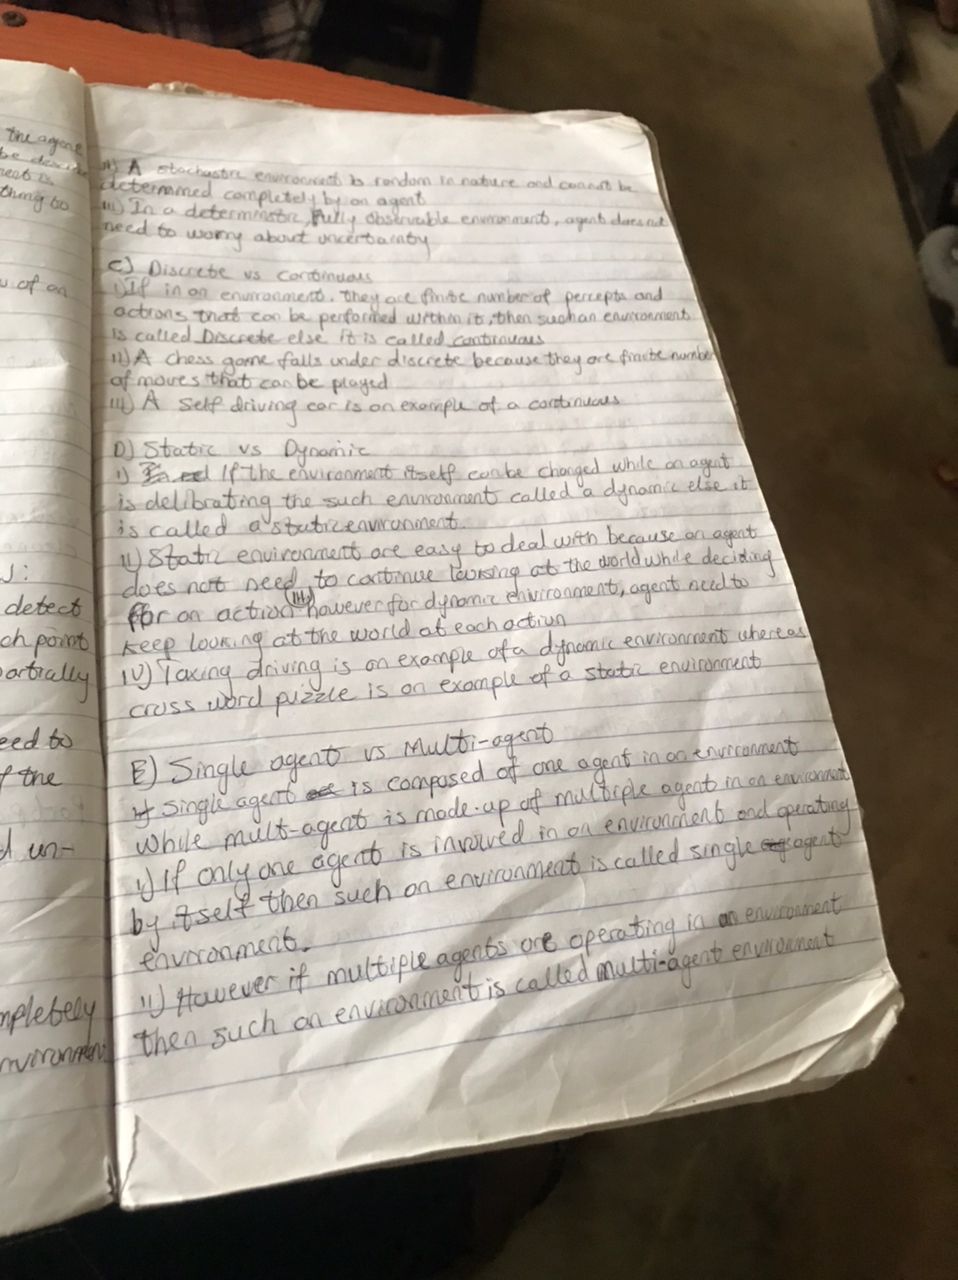 the agent
be describe
ment is
thing to
u of an
J:
detect
ch point
partially
eed to
f the
d un-
mpletely
nvironment
ii) A stochastic environment is random in nature and cannot be
determined completely by an agent
iii) In a deterministic, fully observable environment, agent does not
need to worry about uncertainty
C) Discrete vs continuous
i) If in an environment, they are finite number of percepts and
actions that can be performed within it, then such an environment
is called Discrete else it is called continuous
ii) A chess game falls under discrete because they are finite number
of moves that can be played
iii) A self driving car is an example of a continuous
D) Static vs Dynamic
i) If the environment itself can be changed while an agent
is delibrating the such environment called a dynamic else it
is called a static environment.
ii) Static environment are easy to deal with because an agent
does not need to continue looking at the world while deciding
for an action iii) however for dynamic environment, agent need to
keep looking at the world at each action
iv) Taxing driving is an example of a dynamic environment whereas
cross word puzzle is an example of a static environment
E) Single agent vs Multi-agent
single agent is composed of one agent in an environment
while mult-agent is made-up of multiple agent in an environment
i) If only one agent is involved in an environment and operating
by itself then such an environment is called single agent
environment.
ii) However if multiple agents are operating in an environment
then such an environment is called multi-agent environment